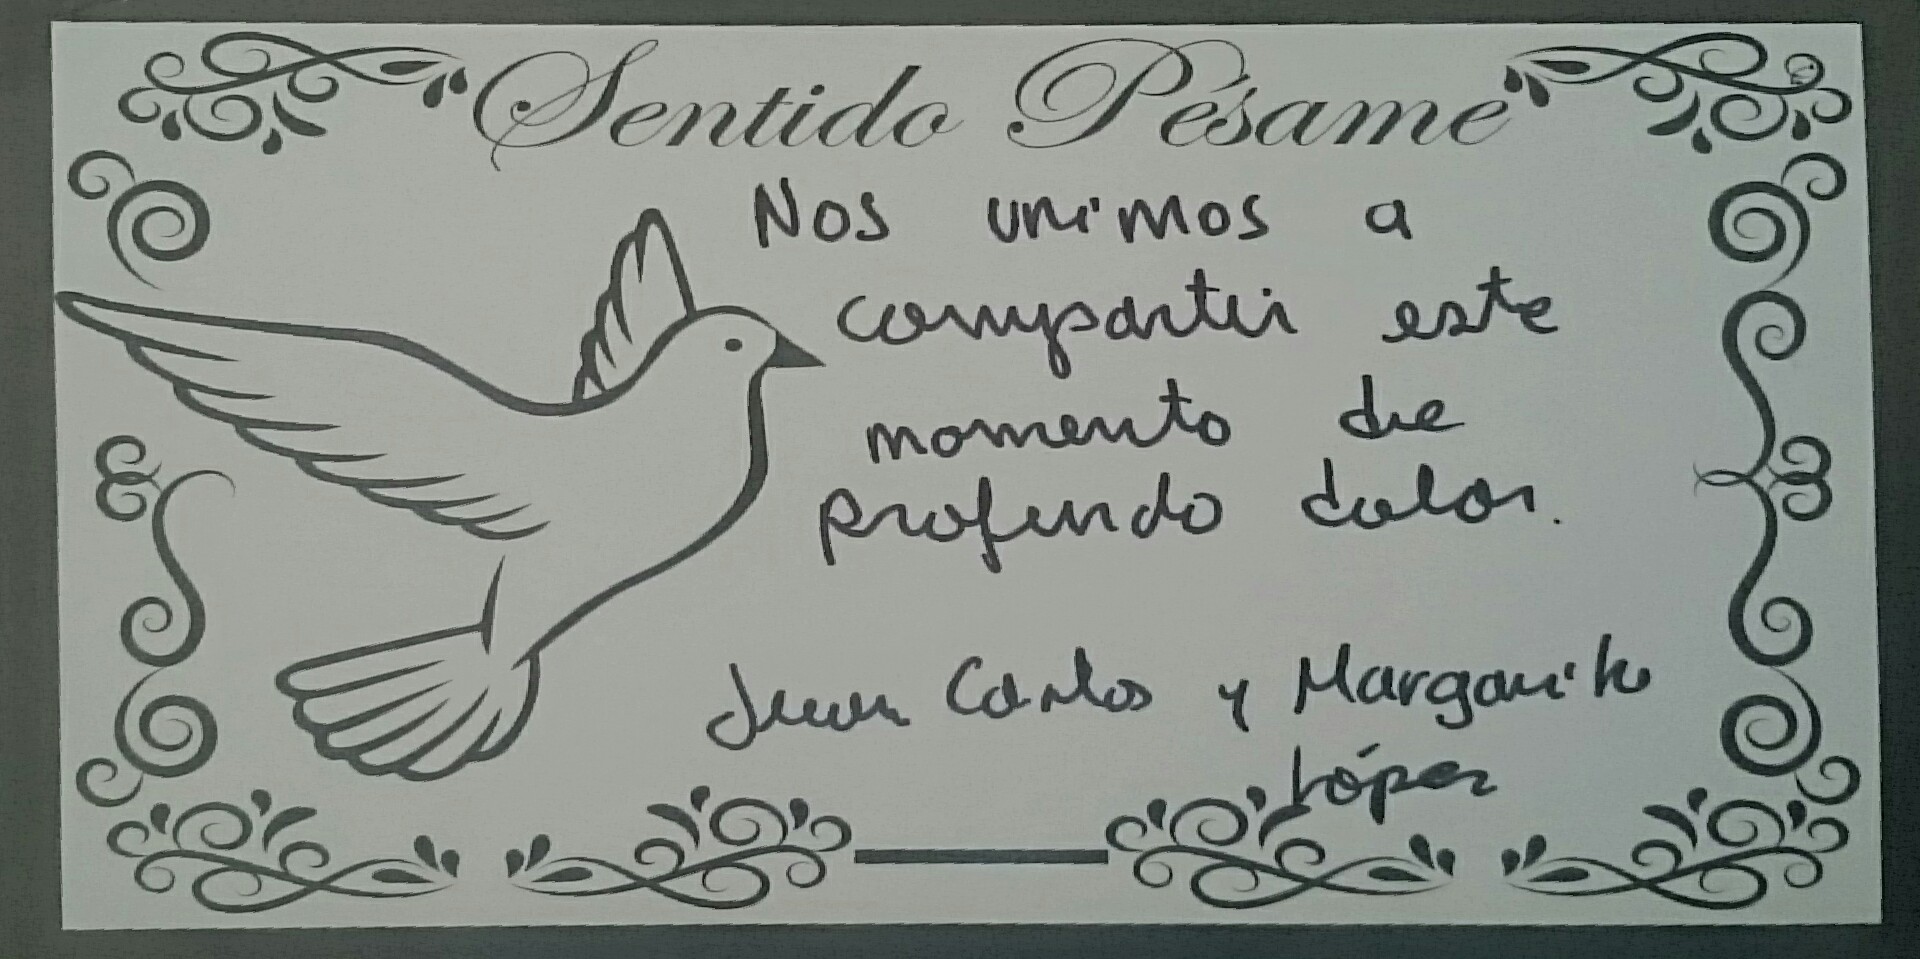 Sentido Pésame
Nos unimos a
compartir este
momento de
profundo dolor.
Juan Carlos y Margarita
López